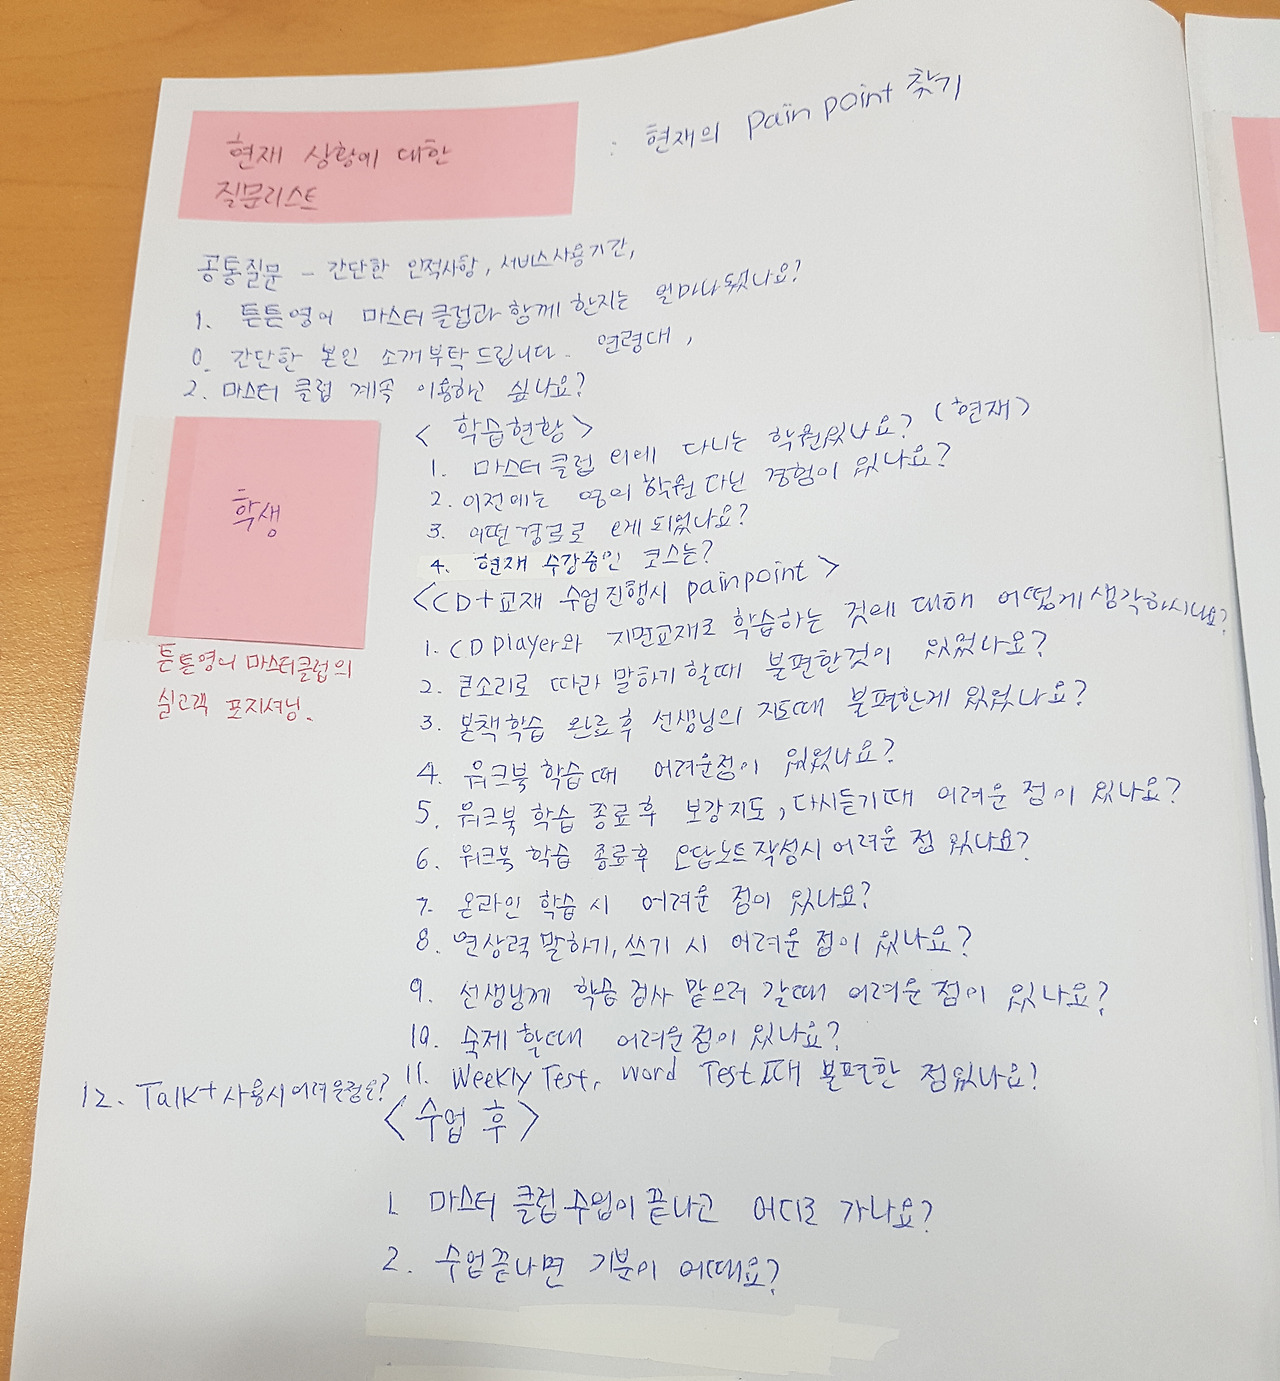 현재 상황에 대한
질문리스트
: 현재의 pain point 찾기
공통질문 - 간단한 인적사항, 서비스사용기간,
1. 튼튼영어 마스터클럽과 함께 한지는 얼마나됐나요?
0. 간단한 본인 소개부탁드립니다. 연령대,
2. 마스터 클럽 계속 이용하고 싶나요?
학생
튼튼영어 마스터클럽의
실고객 포지셔닝.
< 학습현황 >
1. 마스터클럽 외에 다니는 학원있나요? (현재)
2. 이전에는 영어 학원 다닌 경험이 있나요?
3. 어떤경로로 오게 되었나요?
4. 현재 수강중인 코스는?
<CD+교재 수업진행시 painpoint >
1. CD player와 지면교재로 학습하는 것에 대해 어떻게생각하시나요?
2. 큰소리로 따라 말하기 할때 불편한것이 있었나요?
3. 본책학습 완료후 선생님의 지도때 불편한게 있었나요?
4. 워크북 학습때 어려운점이 있었나요?
5. 워크북 학습 종료후 보강지도, 다시듣기때 어려운 점이 있나요?
6. 워크북 학습 종료후 오답노트작성시 어려운 점 있나요?
7. 온라인 학습시 어려운 점이 있나요?
8. 연상력 말하기, 쓰기 시 어려운 점이 있나요?
9. 선생님께 학습검사 맡으러 갈때 어려운점이 있나요?
10. 숙제 할때 어려운점이 있나요?
11. Weekly Test, word Test때 불편한 점있나요?
12. Talk+사용시어려운점은?
< 수업 후 >
1. 마스터 클럽수업이 끝나고 어디로 가나요?
2. 수업끝나면 기분이 어때요?